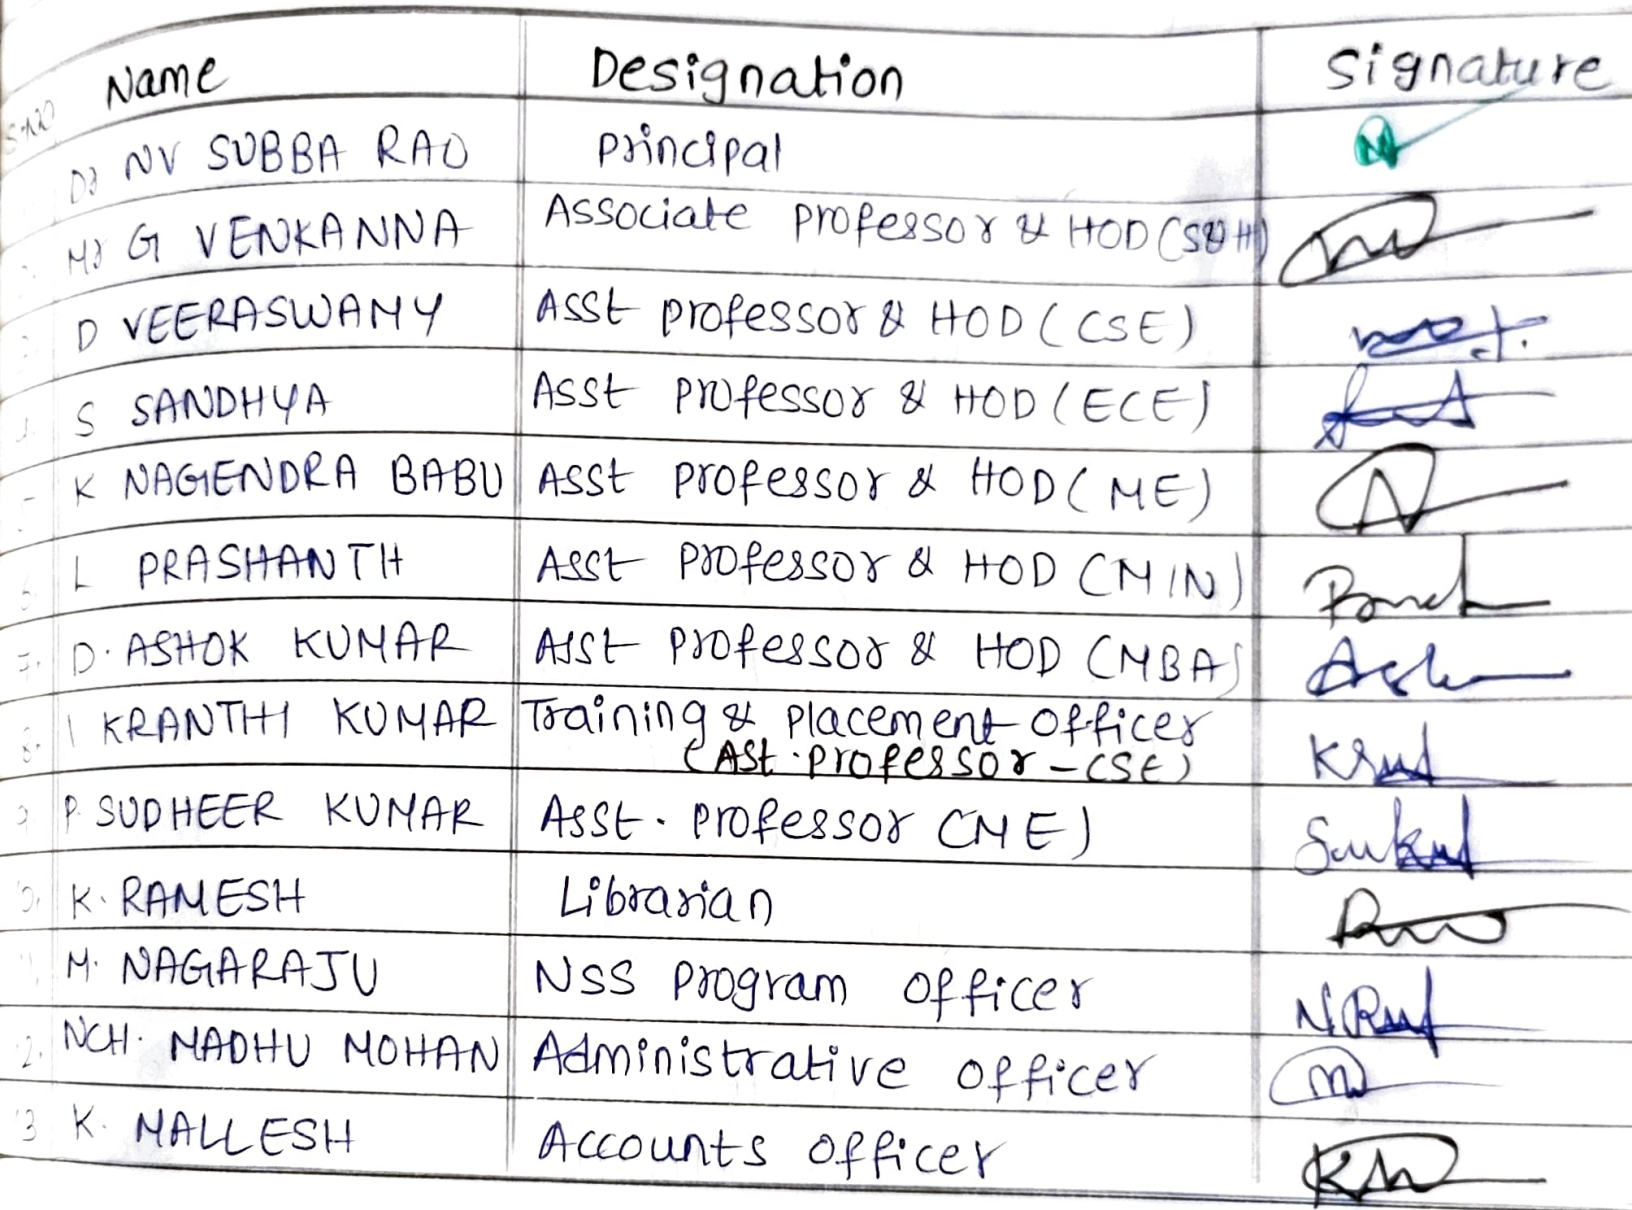 S.NO Name Designation Signature
Dr NV SUBBA RAO Principal
Mr G VENKANNA Associate Professor & HOD (S&H)
D VEERASWAMY Asst Professor & HOD (CSE)
S SANDHYA Asst Professor & HOD (ECE)
5 K NAGENDRA BABU Asst Professor & HOD (ME)
6. L PRASHANTH Asst Professor & HOD (MIN)
7. D. ASHOK KUMAR Asst Professor & HOD (MBA)
8. I KRANTHI KUMAR Training & Placement Officer
(Ast. Professor - CSE)
9 P. SUDHEER KUMAR Asst. Professor (ME)
K. RAMESH Librarian
M. NAGARAJU NSS Program Officer
2. NCH. MADHU MOHAN Administrative Officer
3 K. MALLESH Accounts Officer